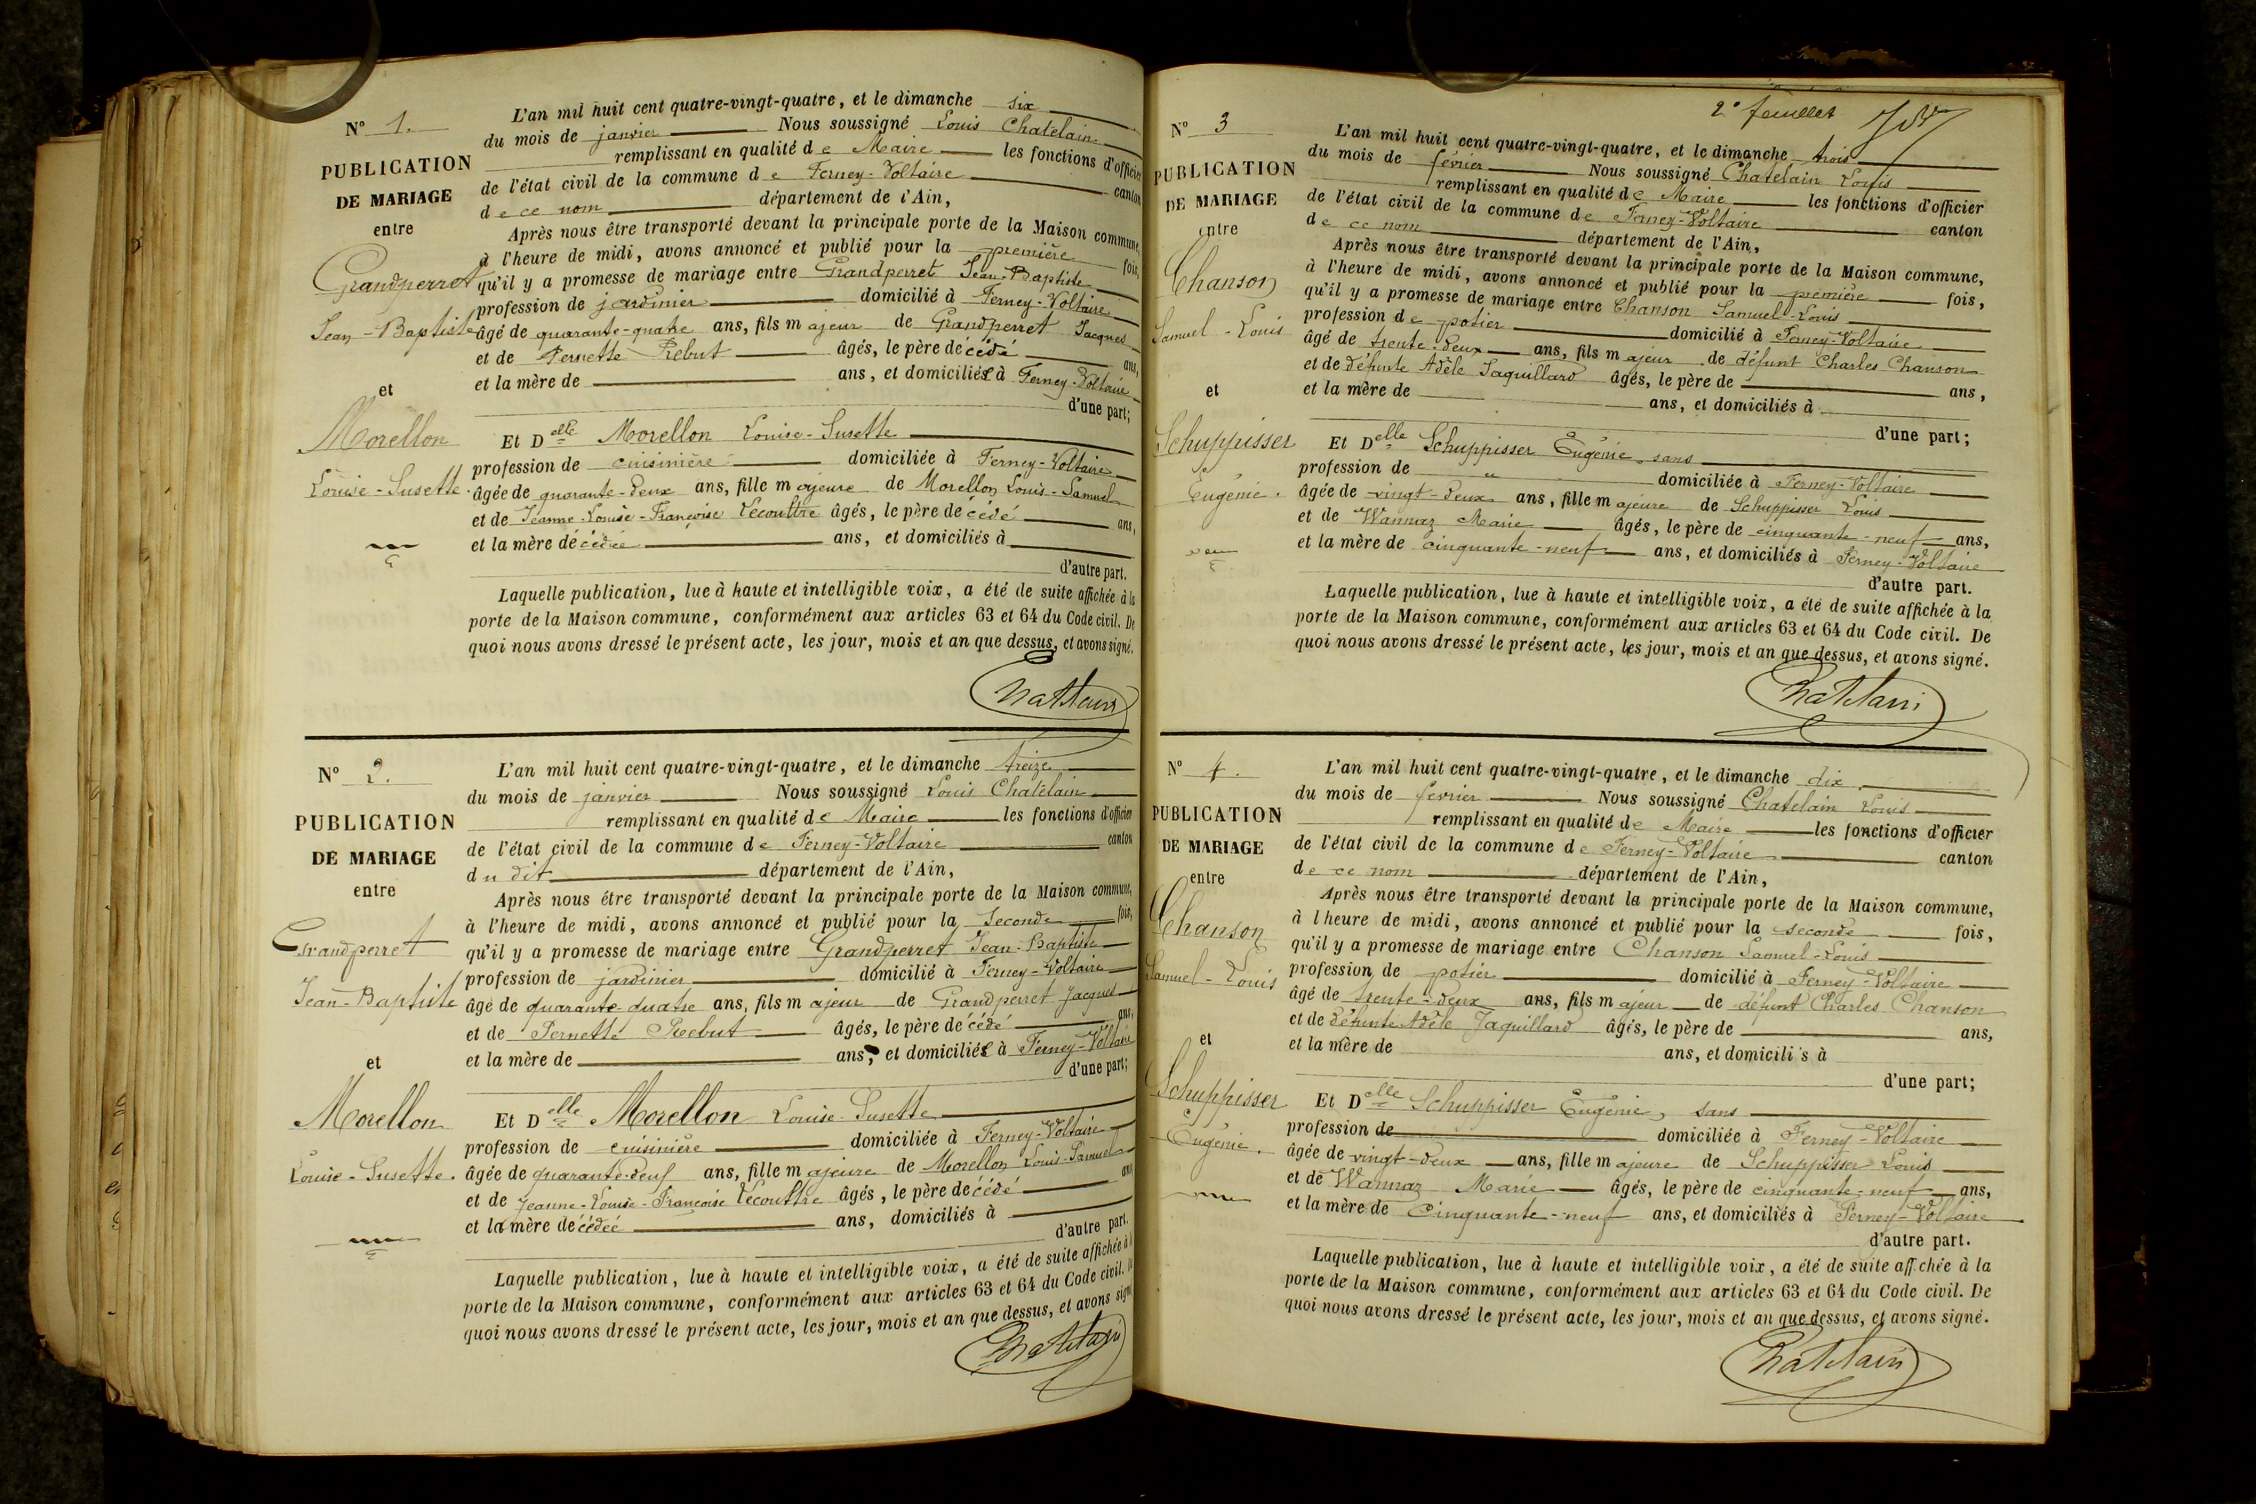 N° 1.
PUBLICATION
DE MARIAGE
entre
Grandperret
Jean-Baptiste
et
Morellon
Louise-Susette.
L'an mil huit cent quatre-vingt-quatre, et le dimanche six
du mois de janvier Nous soussigné Louis Chatelain
remplissant en qualité de Maire les fonctions d'officier
de l'état civil de la commune de Ferney-Voltaire canton
de ce nom département de l'Ain,
Après nous être transporté devant la principale porte de la Maison commune,
à l'heure de midi, avons annoncé et publié pour la première fois,
qu'il y a promesse de mariage entre Grandperret Jean-Baptiste
profession de jardinier domicilié à Ferney-Voltaire
âgé de quarante-quatre ans, fils majeur de Grandperret Jacques
et de Pernette Rebut âgés, le père décédé ans,
et la mère de ans, et domiciliée à Ferney-Voltaire
d'une part;
Et Delle Morellon Louise-Susette
profession de cuisinière domiciliée à Ferney-Voltaire
âgée de quarante-deux ans, fille majeure de Morellon Louis-Samuel
et de Jeanne-Louise-Françoise Lecoultre âgés, le père décédé ans,
et la mère décédée ans, et domiciliés à
d'autre part.
Laquelle publication, lue à haute et intelligible voix, a été de suite affichée à la
porte de la Maison commune, conformément aux articles 63 et 64 du Code civil. De
quoi nous avons dressé le présent acte, les jour, mois et an que dessus, et avons signé.
Chatelain
N° 2.
PUBLICATION
DE MARIAGE
entre
Grandperret
Jean-Baptiste
et
Morellon
Louise-Susette.
L'an mil huit cent quatre-vingt-quatre, et le dimanche treize
du mois de janvier Nous soussigné Louis Chatelain
remplissant en qualité de Maire les fonctions d'officier
de l'état civil de la commune de Ferney-Voltaire canton
du dit département de l'Ain,
Après nous être transporté devant la principale porte de la Maison commune,
à l'heure de midi, avons annoncé et publié pour la seconde fois,
qu'il y a promesse de mariage entre Grandperret Jean-Baptiste
profession de jardinier domicilié à Ferney-Voltaire
âgé de quarante-quatre ans, fils majeur de Grandperret Jacques
et de Pernette Rebut âgés, le père décédé ans,
et la mère de ans, et domiciliée à Ferney-Voltaire
d'une part;
Et Delle Morellon Louise-Susette
profession de cuisinière domiciliée à Ferney-Voltaire
âgée de ans, fille majeure de Morellon Louis-Samuel
et de Jeanne-Louise-Françoise Lécoultre âgés, le père décédé ans
et la mère décédée ans, domiciliés à
d'autre part.
Laquelle publication, lue à haute et intelligible voix, a été de suite affichée à la
porte de la Maison commune, conformément aux articles 63 et 64 du Code civil. De
quoi nous avons dressé le présent acte, les jour, mois et an que dessus, et avons signé
Chatelain
2e feuillet
N° 3
PUBLICATION
DE MARIAGE
entre
Chanson
Samuel-Louis
et
Schuppisser
Eugénie.
L'an mil huit cent quatre-vingt-quatre, et le dimanche trois
du mois de février Nous soussigné Chatelain Louis
remplissant en qualité de Maire les fonctions d'officier
de l'état civil de la commune de Ferney-Voltaire canton
de ce nom département de l'Ain,
Après nous être transporté devant la principale porte de la Maison commune,
à l'heure de midi, avons annoncé et publié pour la première fois,
qu'il y a promesse de mariage entre Chanson Samuel-Louis
profession de potier domicilié à Ferney-Voltaire
âgé de trente-deux ans, fils majeur de défunt Charles Chanson
et de défunte Adèle Jaquillard âgés, le père de ans,
et la mère de ans, et domiciliés à
d'une part;
Et Delle Schuppisser Eugénie, sans
profession de " domiciliée à Ferney-Voltaire
âgée de vingt-deux ans, fille majeure de Schuppisser Louis
et de Wannaz Marie âgés, le père de cinquante-neuf ans,
et la mère de cinquante-neuf ans, et domiciliés à Ferney-Voltaire
d'autre part.
Laquelle publication, lue à haute et intelligible voix, a été de suite affichée à la
porte de la Maison commune, conformément aux articles 63 et 64 du Code civil. De
quoi nous avons dressé le présent acte, les jour, mois et an que dessus, et avons signé.
Chatelain
N° 4.
PUBLICATION
DE MARIAGE
entre
Chanson
Samuel-Louis
et
Schuppisser
Eugénie.
L'an mil huit cent quatre-vingt-quatre, et le dimanche dix
du mois de février Nous soussigné Chatelain Louis
remplissant en qualité de Maire les fonctions d'officier
de l'état civil de la commune de Ferney-Voltaire canton
de ce nom département de l'Ain,
Après nous être transporté devant la principale porte de la Maison commune,
à l'heure de midi, avons annoncé et publié pour la seconde fois,
qu'il y a promesse de mariage entre Chanson Samuel-Louis
profession de potier domicilié à Ferney-Voltaire
âgé de trente-deux ans, fils majeur de défunt Charles Chanson
et de défunte Adèle Jaquillard âgés, le père de ans,
et la mère de ans, et domiciliés à
d'une part;
Et Delle Schuppisser Eugénie, sans
profession de domiciliée à Ferney-Voltaire
âgée de vingt-deux ans, fille majeure de Schuppisser Louis
et de Wannaz Marie âgés, le père de cinquante-neuf ans,
et la mère de cinquante-neuf ans, et domiciliés à Ferney-Voltaire
d'autre part.
Laquelle publication, lue à haute et intelligible voix, a été de suite affichée à la
porte de la Maison commune, conformément aux articles 63 et 64 du Code civil. De
quoi nous avons dressé le présent acte, les jour, mois et an que dessus, et avons signé.
Chatelain